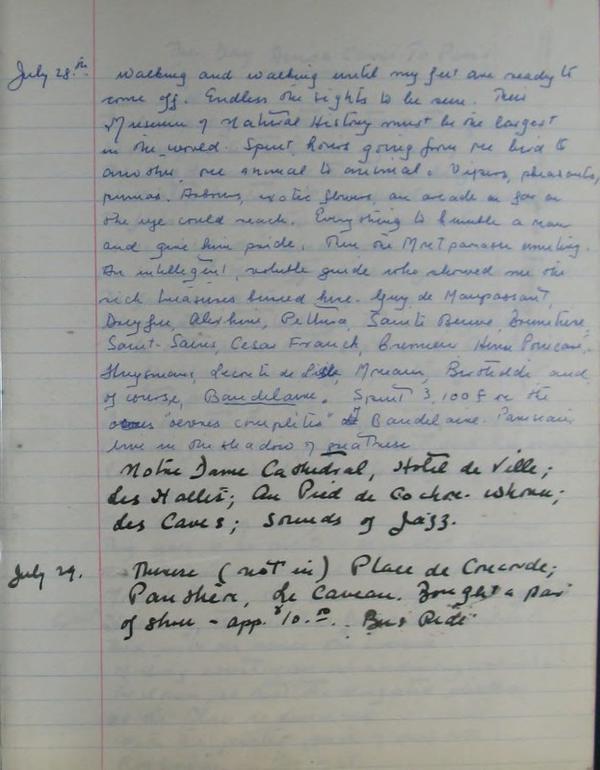 July 28.th walking and walking until my feet are ready to
come off. Endless the sights to be seen. Their
Museum of Natural History must be the largest
in the world. Spent hours going from one bird to
another, one animal to animal. Vipers, pheasants,
pumas. Arbors, exotic flowers, an arcade as far as
the eye could reach. Everything to humble a man
and give him pride. Then the Montparnasse
An intelligent, voluble guide who showed me the
rich treasures buried here. Guy de Maupassant,
Dreyfus, Alekhine, Sainte Beuve, Brunetiere,
Saint-Saens, Cesar Franck, Henri Poincare,
Huysmans, Leconte de Lisle, and
of course, Baudelaire. Spent 3,100 f on the
"oevres completes" of Baudelaire. Parisians
live in the shadow of greatness
Notre Dame Cathedral, Hotel de Ville;
Les Halles; Au Pied de Cochon
Les Caves; Sounds of Jazz.
July 29. Therese (not in) Place de Concorde;
Pantheon, Le Caveau. Bought a pair
of shoes - app. $10.00. Bus Ride